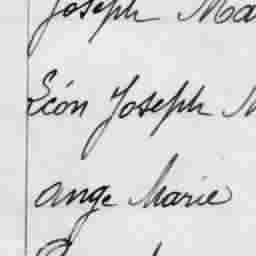 Joseph Ma
Léon Joseph M
ange Marie